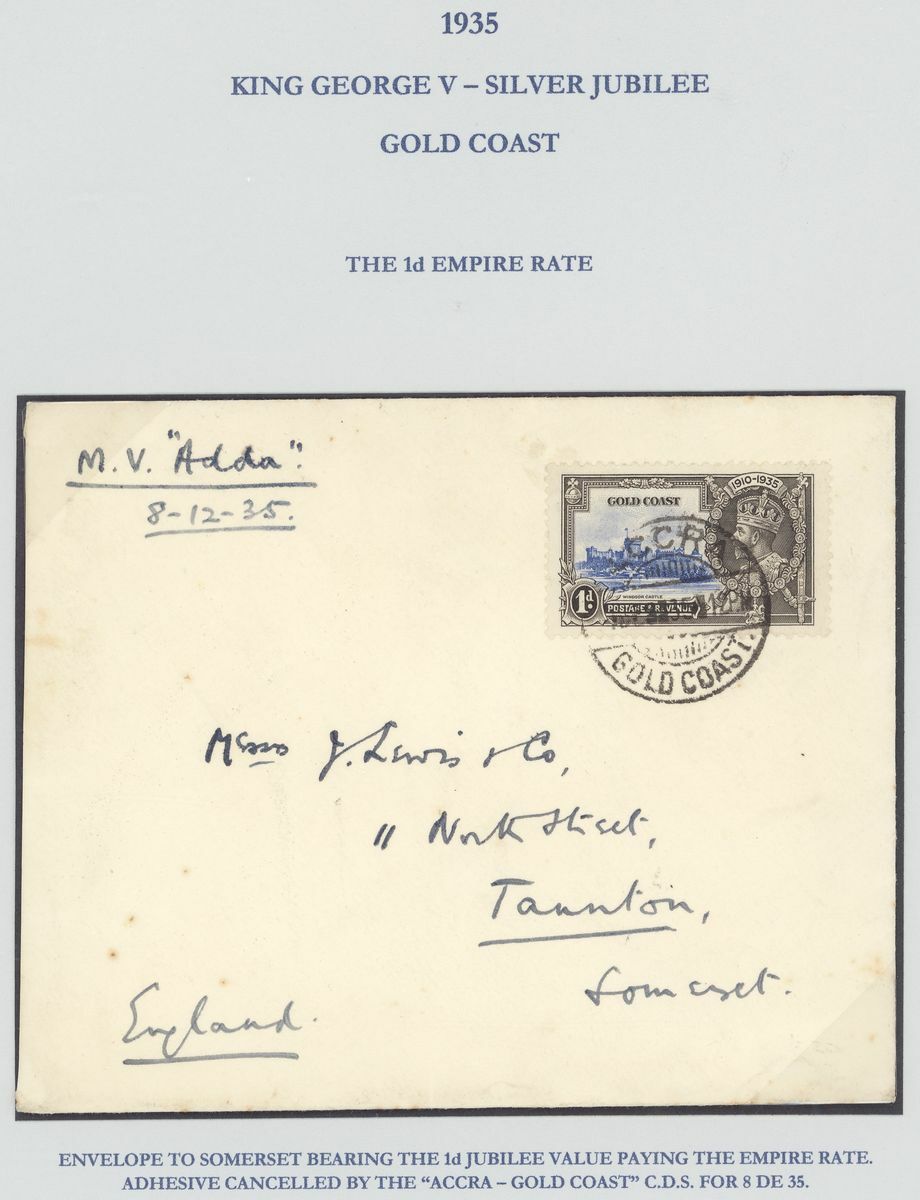 1935
KING GEORGE V – SILVER JUBILEE
GOLD COAST
THE 1d EMPIRE RATE
M. V. "Adda".
8-12-35.
1910-1935
GOLD COAST
WINDSOR CASTLE
1d
POSTAGE & REVENUE
ACCRA
GOLD COAST.
Messrs J. Lewis & Co,
11 North Street,
Taunton,
Somerset.
England.
ENVELOPE TO SOMERSET BEARING THE 1d JUBILEE VALUE PAYING THE EMPIRE RATE.
ADHESIVE CANCELLED BY THE "ACCRA – GOLD COAST" C.D.S. FOR 8 DE 35.